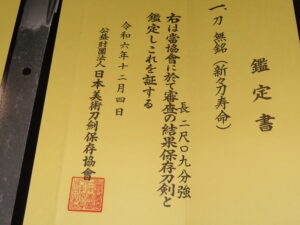 鑑定書
一、刀 無銘(新々刀寿命)
長 二尺〇九分強
右は當協會に於て審査の結果保存刀剣と
鑑定しこれを証する
令和六年十二月四日
公益財団法人 日本美術刀剣保存協會